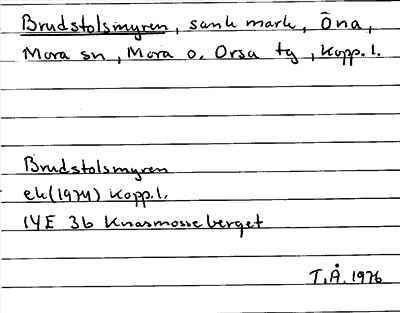 Brudstolsmyren, sank mark, Öna,
Mora sn, Mora o. Orsa tg, Kopp.l.
Brudstolsmyren
ek(1974) Kopp.l.
14E 3b Knasmosseberget
T.Å. 1976